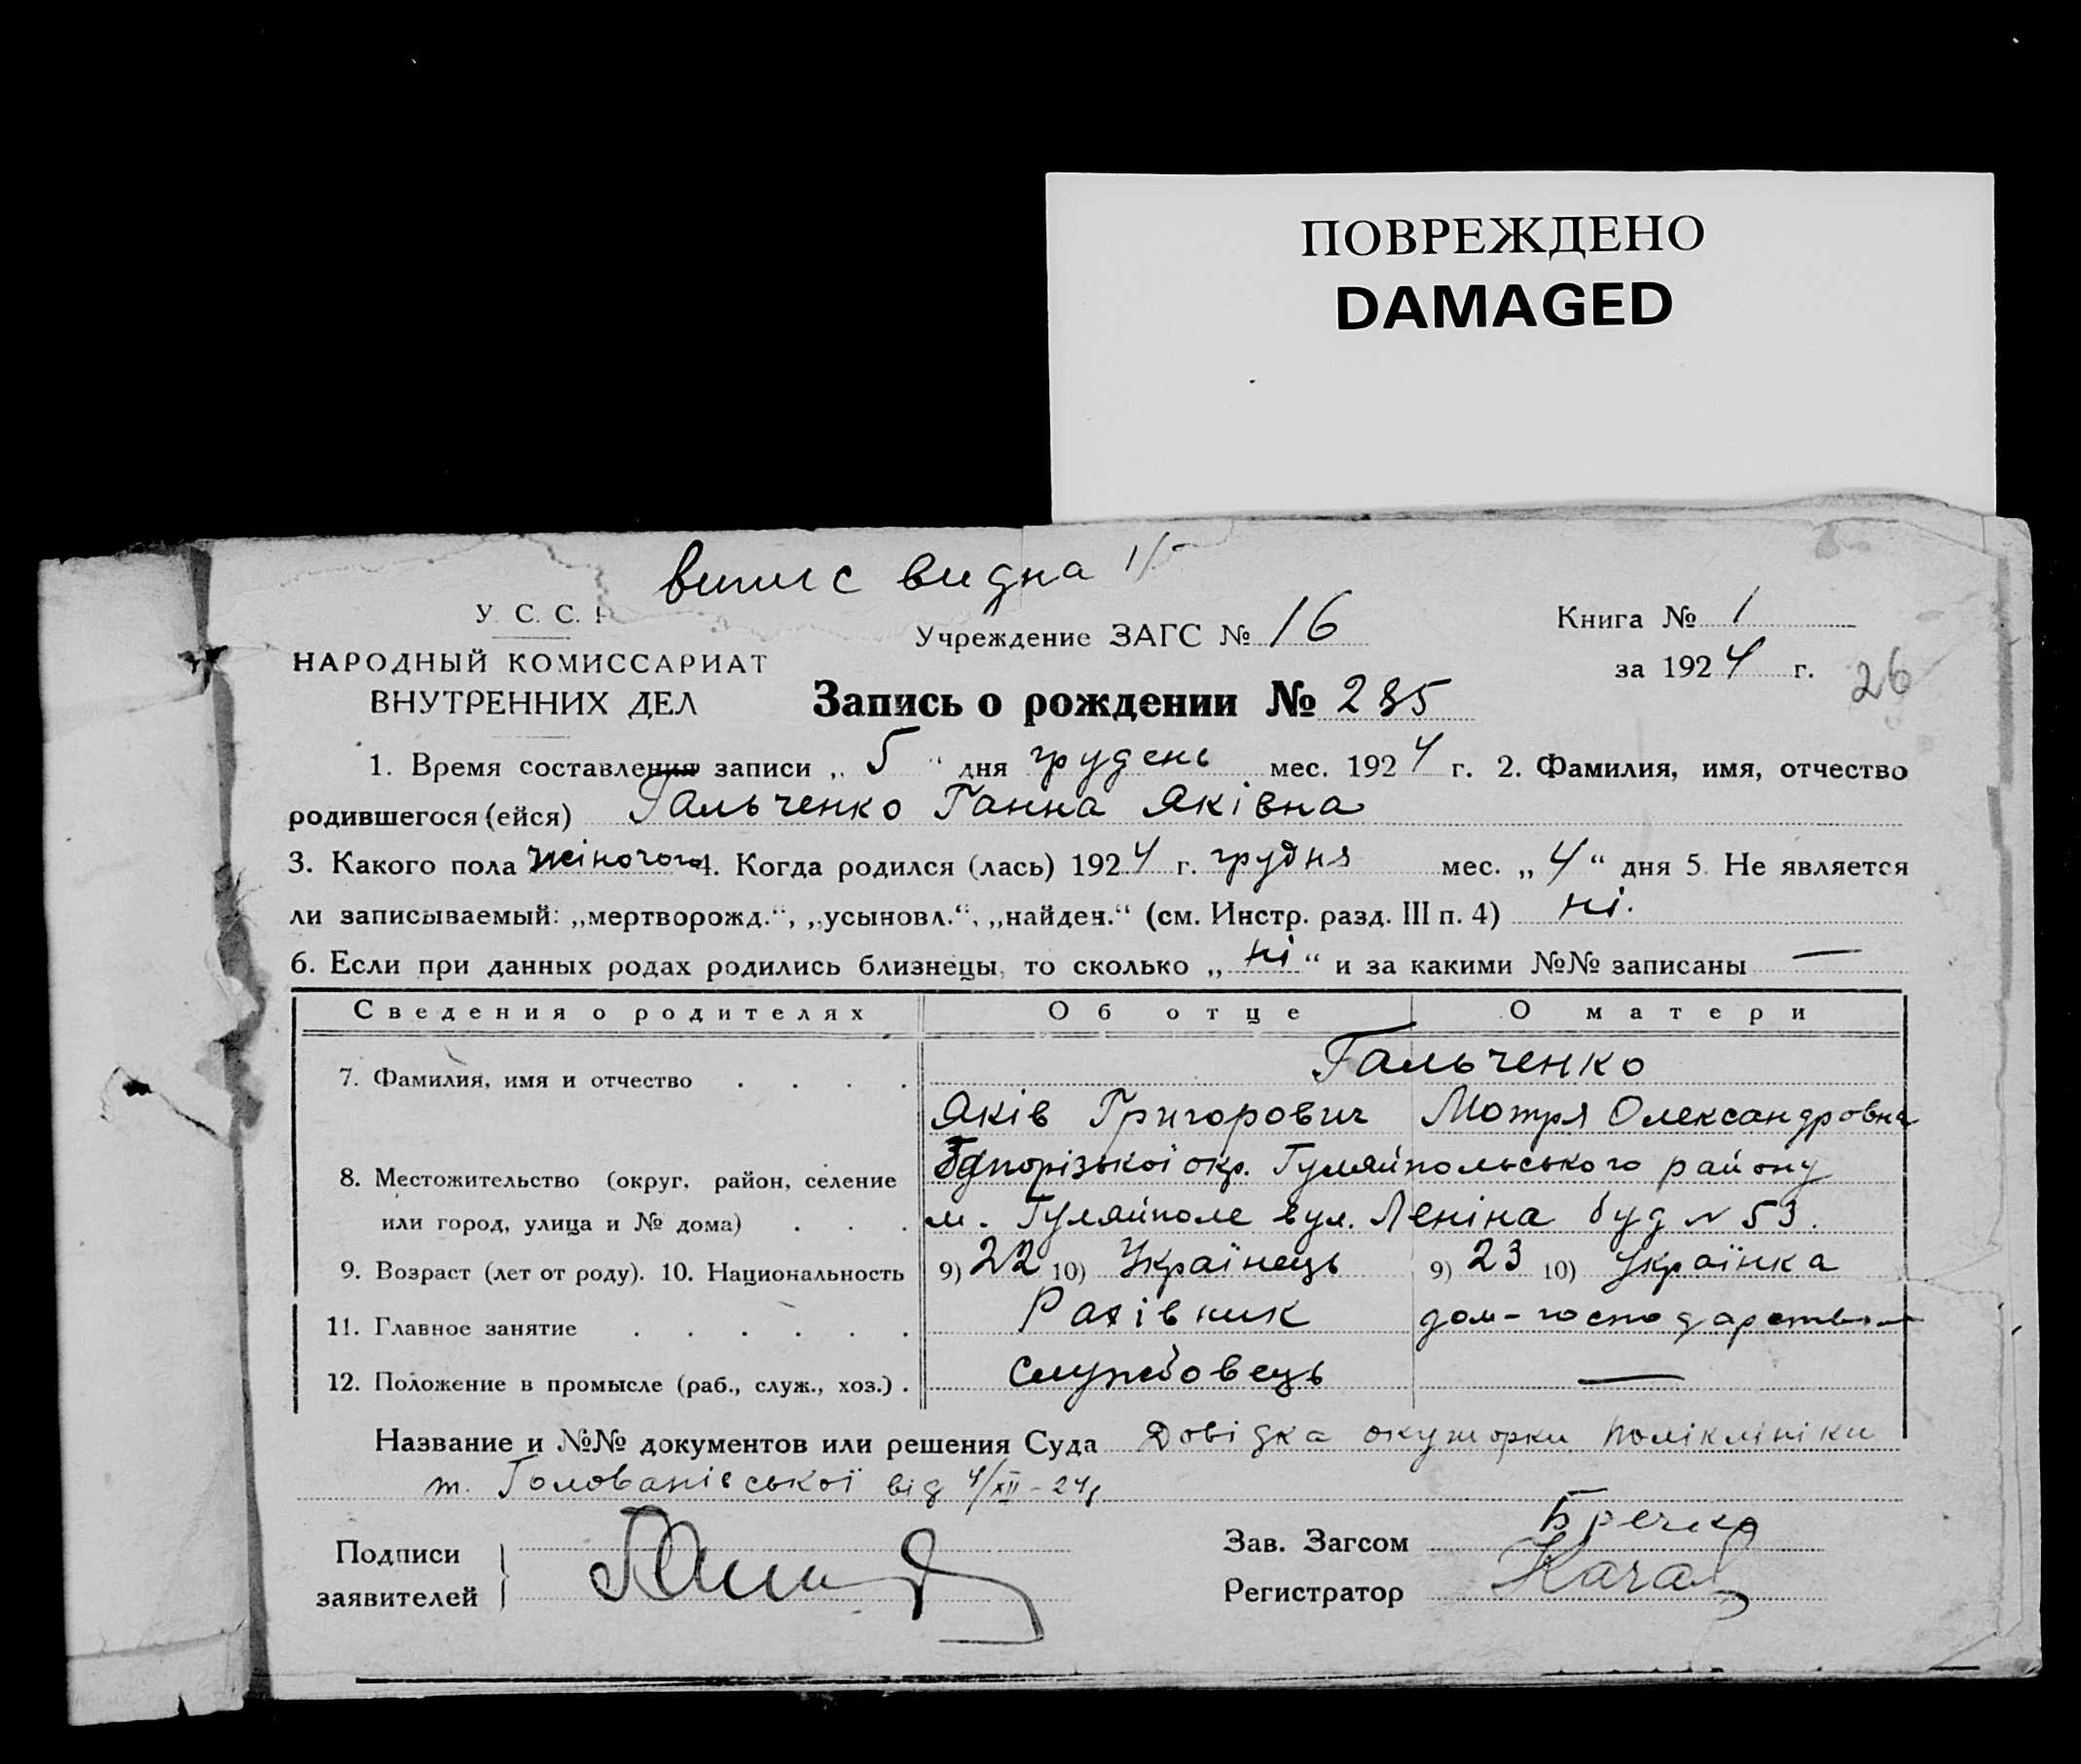 ПОВРЕЖДЕНО
DAMAGED
випис видна
У. С. С. Р
Учреждение ЗАГС № 16
Книга № 1
НАРОДНЫЙ КОМИССАРИАТ
за 1924 г. 26
ВНУТРЕННИХ ДЕЛ
Запись о рождении № 285
1. Время составления записи „ 5 “ дня грудень мес. 1924 г. 2. Фамилия, имя, отчество
родившегося (ейся) Гальченко Ганна Яківна
3. Какого пола жіночого 4. Когда родился (лась) 1924 г. грудня мес. „ 4 “ дня 5. Не является
ли записываемый: „мертворожд.“, „усыновл.“, „найден.“ (см. Инстр. разд. III п. 4) ні.
6. Если при данных родах родились близнецы, то сколько „ ні “ и за какими №№ записаны —
Сведения о родителях Об отце О матери
7. Фамилия, имя и отчество . . . . Гальченко
Яків Григорович Мотря Олександровна
8. Местожительство (округ, район, селение Запорізької окр. Гуляйпольського району
или город, улица и № дома) . . . м. Гуляйполе вул. Леніна буд № 53.
9. Возраст (лет от роду). 10. Национальность 9) 22 10) Українець 9) 23 10) Українка
11. Главное занятие . . . . . . Рахівник дом-господарство
12. Положение в промысле (раб., служ., хоз.) . службовець —
Название и №№ документов или решения Суда Довідка акушорки поліклініки
т. Голованівської від 4/XII-24р
Подписи
заявителей
Зав. Загсом
Регистратор